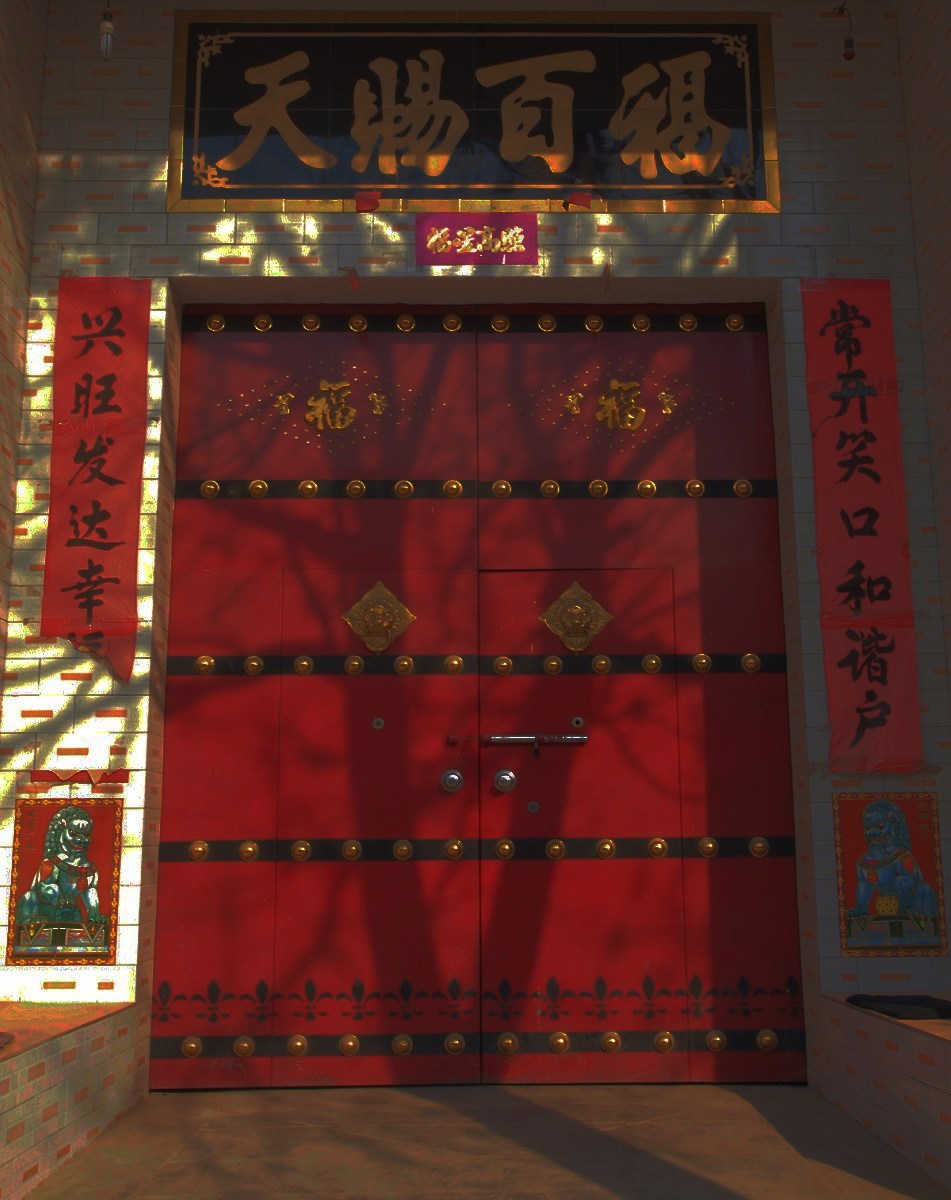 天赐百福
福星高照
常开笑口和谐户
兴旺发达幸
福
福